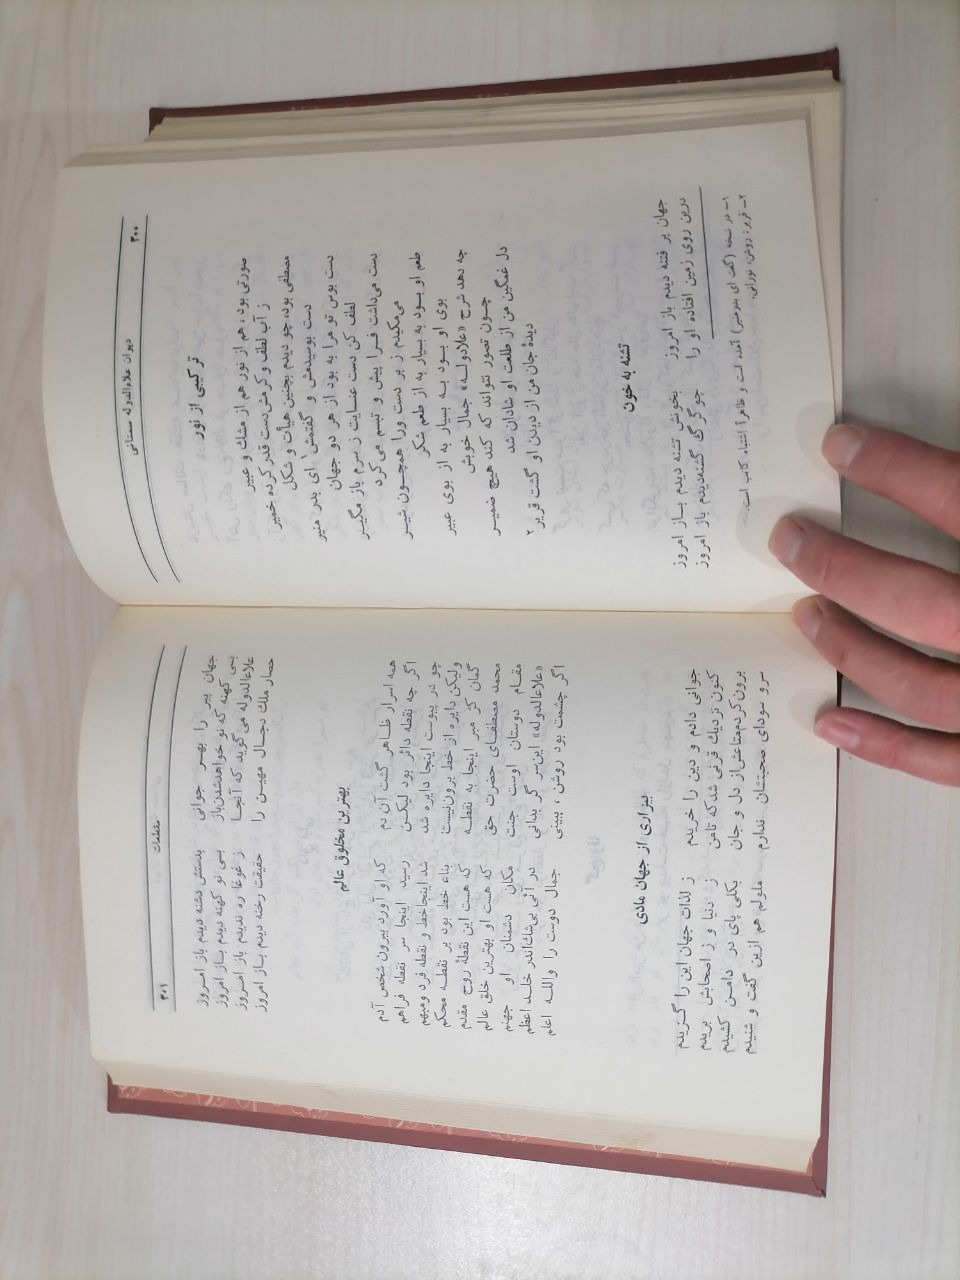 دیوان علاءالدوله سمنانی
۳۰۰
ترکیبی از نور
صورتی بود، هم از نور هم از مشك و عبیر
ز آب لطف و کرمش دست قدر کرده خمیر
مصطفی بود، چو دیدم بچنین هیأت و شکل
دست بوسیدمش و گفتمش۱ ای بدر منیر
دست بوس تو مرا به بود از هر دو جهان
لطف کن دست عنایت ز سرم باز مگیر
دست می‌داشت فرا پیش و تبسم می‌کرد
می‌مکیدم ز بر دست ورا همچون شیر
طعم او بود به بسیار به از طعم شکر
بوی او بود به بسیار به از بوی عبیر
چه دهد شرح «علادوله» جمال خویش
چون تصور نتواند که کند هیچ ضمیر
دل غمگین من از طلعت او شادان شد
دیدهٔ جان من از دیدن او گشت قریر۲
تشنه به خون
جهان پر فتنه دیدم باز امروز بخونش تشنه دیدم باز امروز
درین روی زمین افتاده او را چو گرگ گشنه دیدم باز امروز
۱- در نسخه (گفت ای بدرمنیر) آمده است و ظاهراً اشتباه کاتب است.
۲- قریر: روشن، نورانی.
مقطعات
۳۰۱
جهان پیر را بهر جوانی بدستش دشنه دیدم باز امروز
بسی کهنه که نو خواهدشدن باز بسی نو کهنه دیدم باز امروز
علاءالدوله می‌گوید که آنجا ز غوغا ره ندیدم باز امروز
حصار ملك دجال مهین را حقیقت رخنه دیدم باز امروز
بهترین مخلوق عالم
همه اسرار ظاهر گشت آن دم که او آورد بیرون شخص آدم
اگر چه نقطه دائر بود لیکن رسید اینجا سر نقطه فراهم
چو در پیوست اینجا دایره شد شد اینجا خط و نقطه فرد و مبهم
ولیکن دایره از خط برون نیست بناء خط بود بر نقطه محکم
گمان کژ مبر اینجا به نقطه که هست این نقطهٔ روح مقدم
محمد مصطفای حضرت حق که هست او بهترین خلق عالم
مقام دوستان اوست جنت مکان دشمنان او جهنم
«علاءالدوله» این سر گر بدانی بر آئی بی‌شك اندر خلد اعظم
اگر چشمت بود روشن، ببینی جمال دوست را والله اعلم
بیزاری از جهان مادی
جوانی دادم و دین را خریدم ز لذات جهان این را گزیدم
کنون نزدیك قرنی شد که تامن ز دنیا و ز اصحابش بریدم
برون کردم متاعش از دل و جان بکلی پای در دامن کشیدم
سرو سودای صحبتشان ندارم ملولم هم ازین گفت و شنیدم